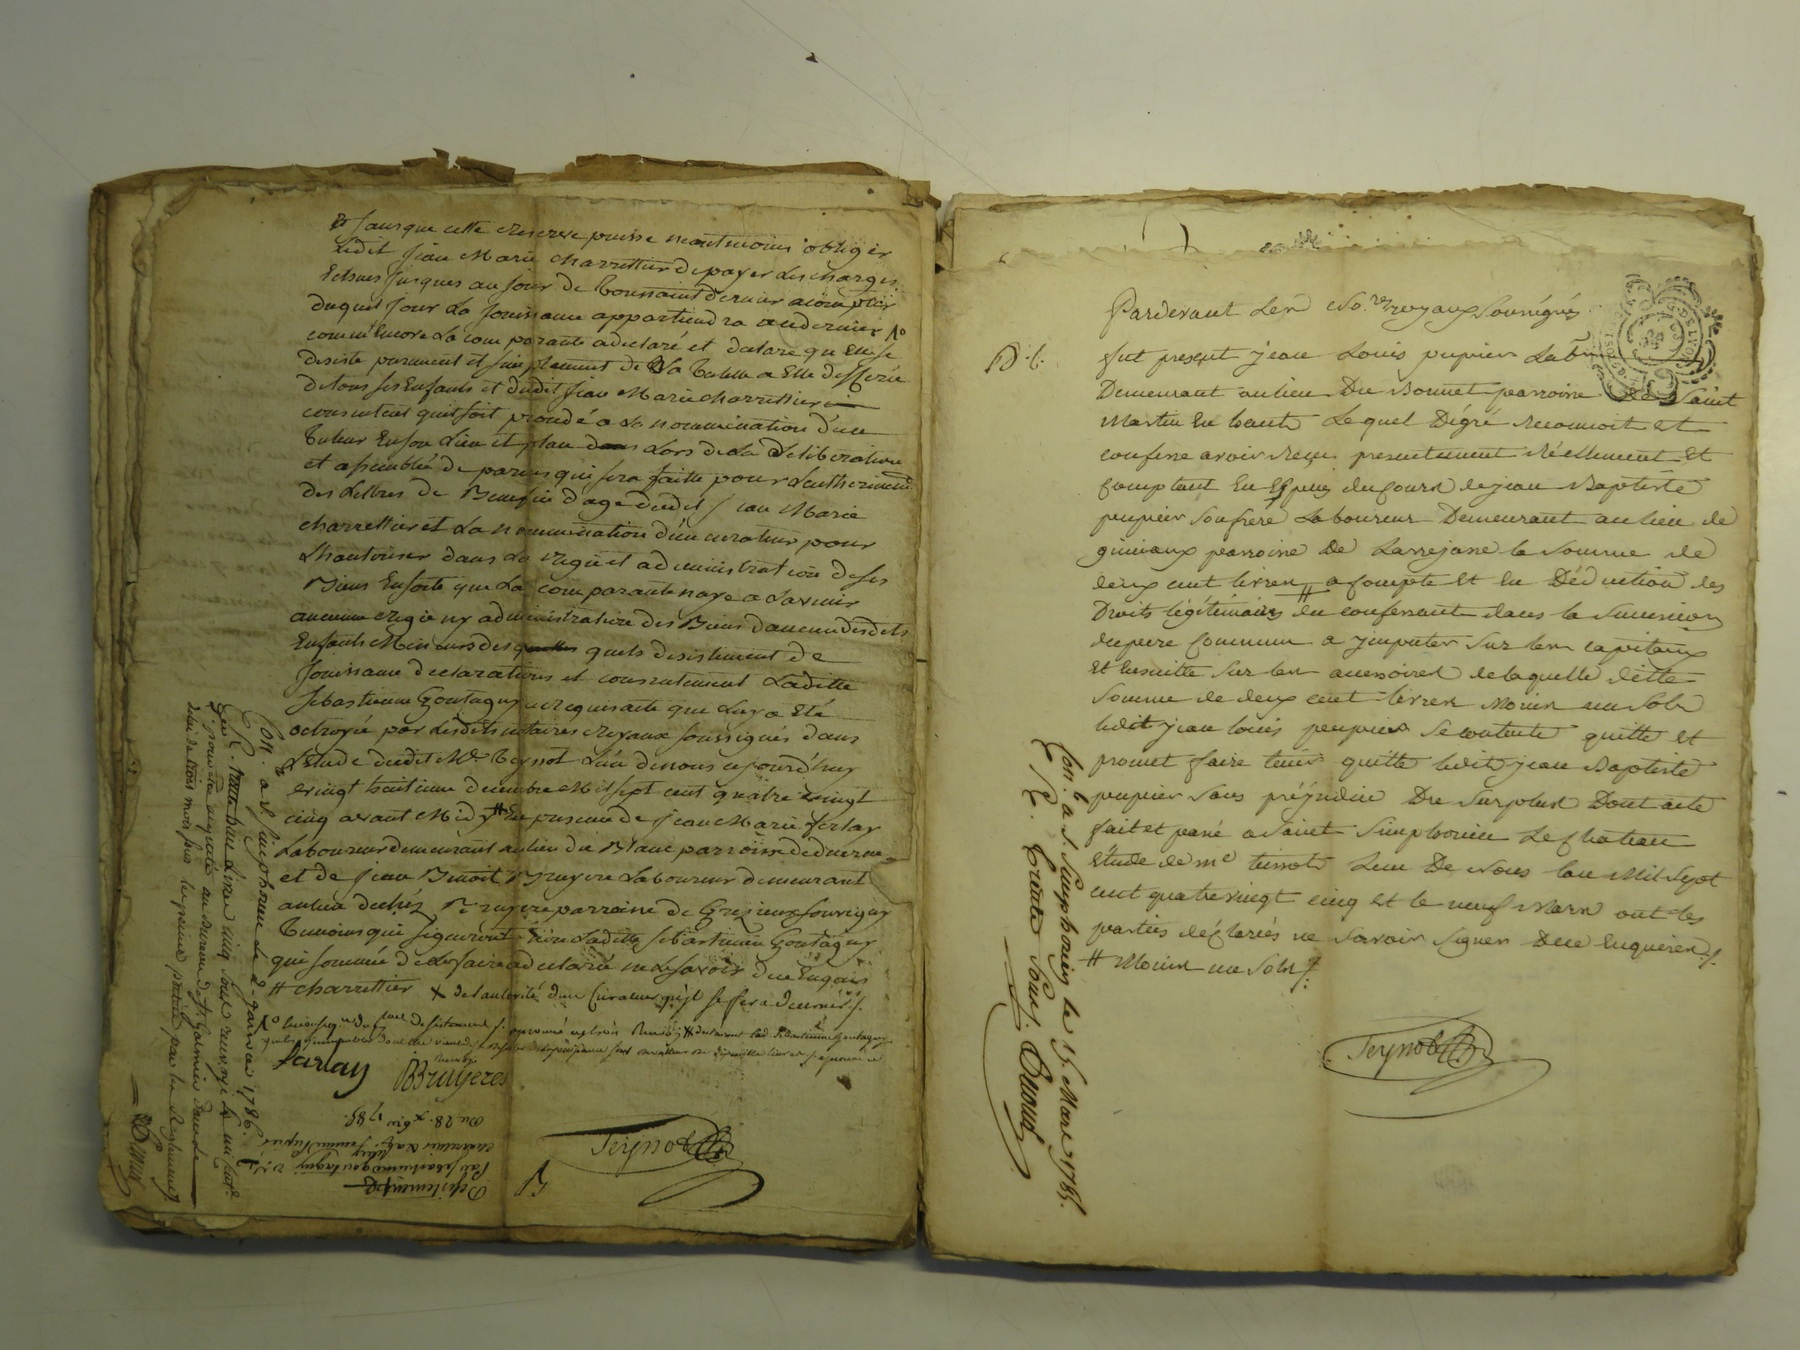 & sans que cette reserve puisse neantmoins obliger
Ledit Jean Marie charrettier de payer Les charges
Echues Jusques au Jour de Toussaint dernier acompter
duquel Jour La Jouissance appartiendra audernier
comm'Encore La comparante adeclaré et declare qu'Elle se
desiste purement et simplement de La Tutelle a Elle defferée
detous ses Enfants et dudit Jean Marie charrettier
consentent quil soit procedé a La nommination d'un
Tuteur Enson Lieu et place Lors de La deliberation
et assemblée de parens qui sera faitte pour L'entherinement
des Lettres de Benefice d'age dudit Jean Marie
charrettier et La nommination d'un curateur pour
L'hautoriser dans La regie et administration de ses
Biens Ensorte que La comparante naye a Lavenir
aucunne regie ny administration des Biens d'aucun desdits
Enfants Mineurs des quels desistement de
Jouissance declarations et consentement Laditte
Sebastienne Goutagny a requis acte que Luy a Eté
octroyé par Lesdits notaires royaux soussignés dans
L'etude dudit Me Teynot L'un denous cejourd'huy
vingt huitieme decembre Mil sept cent quatre vingt
cinq avant Midy En presence de Jean Marie ferlay
Laboureur demeurant au lieu du Blanc parroisse deduerne
et de Jean Benoit Bruyere Laboureur demeurant
au lieu de chéz Bruyere parroisse de Grezieux souvigny
Temoins qui signeront non Laditte Sebastienne Goutagny
qui sommée de Le faire a declaré ne Le savoir due Enquis
# charrettier x de l'autorité d'un Curateur qu'il se fera dument
farlay BBruyeres
Teynot
Desistement
Sebastienne goutagny
Du 28. xbre 1785.
Con. a St Simphorien Le 2 janvier 1786.
Par devant Les No.res royaux Soussignés
fut present jean Louis pupier Lab.r
Demeurant au lieu Du Bonnet parroisse De Saint
Martin En haute Lequel Dégré reconnoit et
confesse avoir reçu presentement Réellement Et
Comptant En Espèces du cours de jean Baptiste
pupier son frere Laboureur Demeurant au lieu de
gimiaux parroisse De Larrejasse la Somme de
deux cent livres # a Compte Et En Déduction des
Droits légitimaires du confessant dans la Succession
du pere Commun a Imputer Sur les capitaux
Et Ensuitte Sur les accessoires de laquelle ditte
Somme de deux cent livres Moins un Sols
ledit jean louis pupier Se contente quitte Et
promet faire tenir quitte ledit jean Baptiste
pupier Sans préjudice Du Surplus Dont acte
fait et passé a Saint Simphorien Le Chateau
Etude de me teinot L'un De Nous l'an Mil Sept
cent quatre vingt cinq Et le neuf Mars ont les
parties déclarés ne Savoir Signer Due Enquises
# Moins un Sols
Con. a St. Simphorien le 15. Mars 1785.
Trente Sous.
Teynot